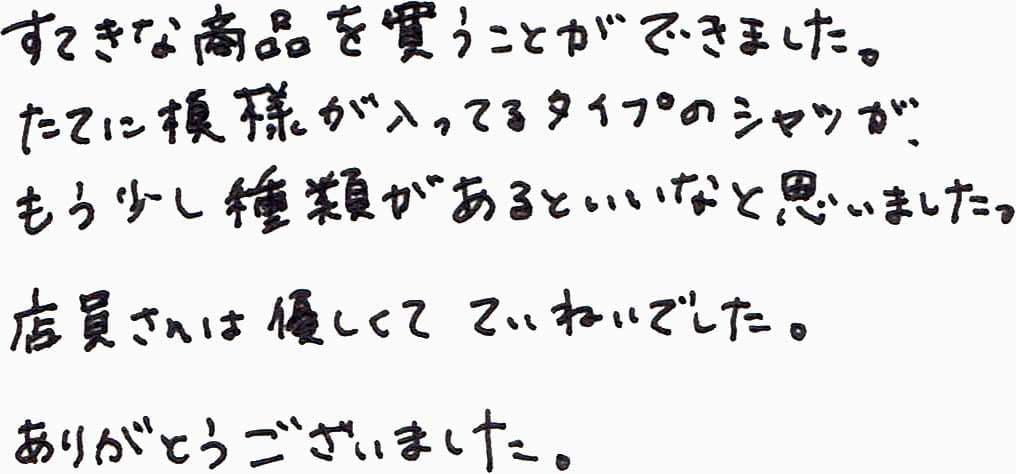 すてきな商品を買うことができました。
たてに模様が入ってるタイプのシャツが、
もう少し種類があるといいなと思いました。
店員さんは優しくて ていねいでした。
ありがとうございました。